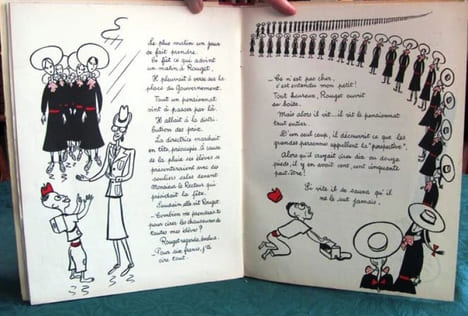 Le plus malin un jour se
fait prendre.
Ce fut ce qui advint
un matin à Rouget.
Il pleuvait à verse sur la
place du Gouvernement.
Tout un pensionnat
vint à passer par là.
Il allait à la distri-
bution des prix.
La directrice marchait
en tête, préoccupée. À cause
de la pluie ses élèves se
présenteraient avec des
souliers sales devant
Monsieur le Recteur qui
présidait la fête.
Soudain elle vit Rouget.
- Combien me prendrais-tu
pour cirer les chaussures de
toutes mes élèves?
Rouget regarda,
- Pour dix francs, j'te
cire tout.
- Ce n'est pas cher,
c'est entendu mon petit!
Tout heureux, Rouget ouvrit
sa boîte.
Mais alors il vit... il vit le pensionnat
tout entier.
D'un seul coup, il découvrit ce que les
grandes personnes appellent la "perspective".
Alors qu'il croyait cirer dix ou douze
pieds, il y en avait cent, cent cinquante
peut-être!
Si vite il se sauva qu'il
ne le sut jamais.